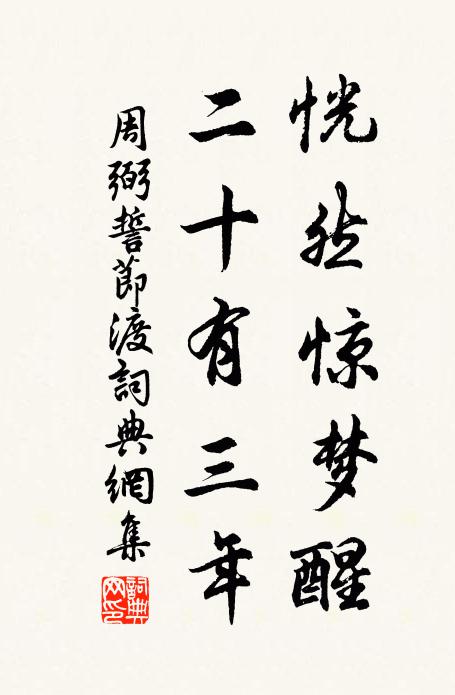 恍然惊梦醒
二十有三年
周弼誓節渡詞典網集
詞典
网印